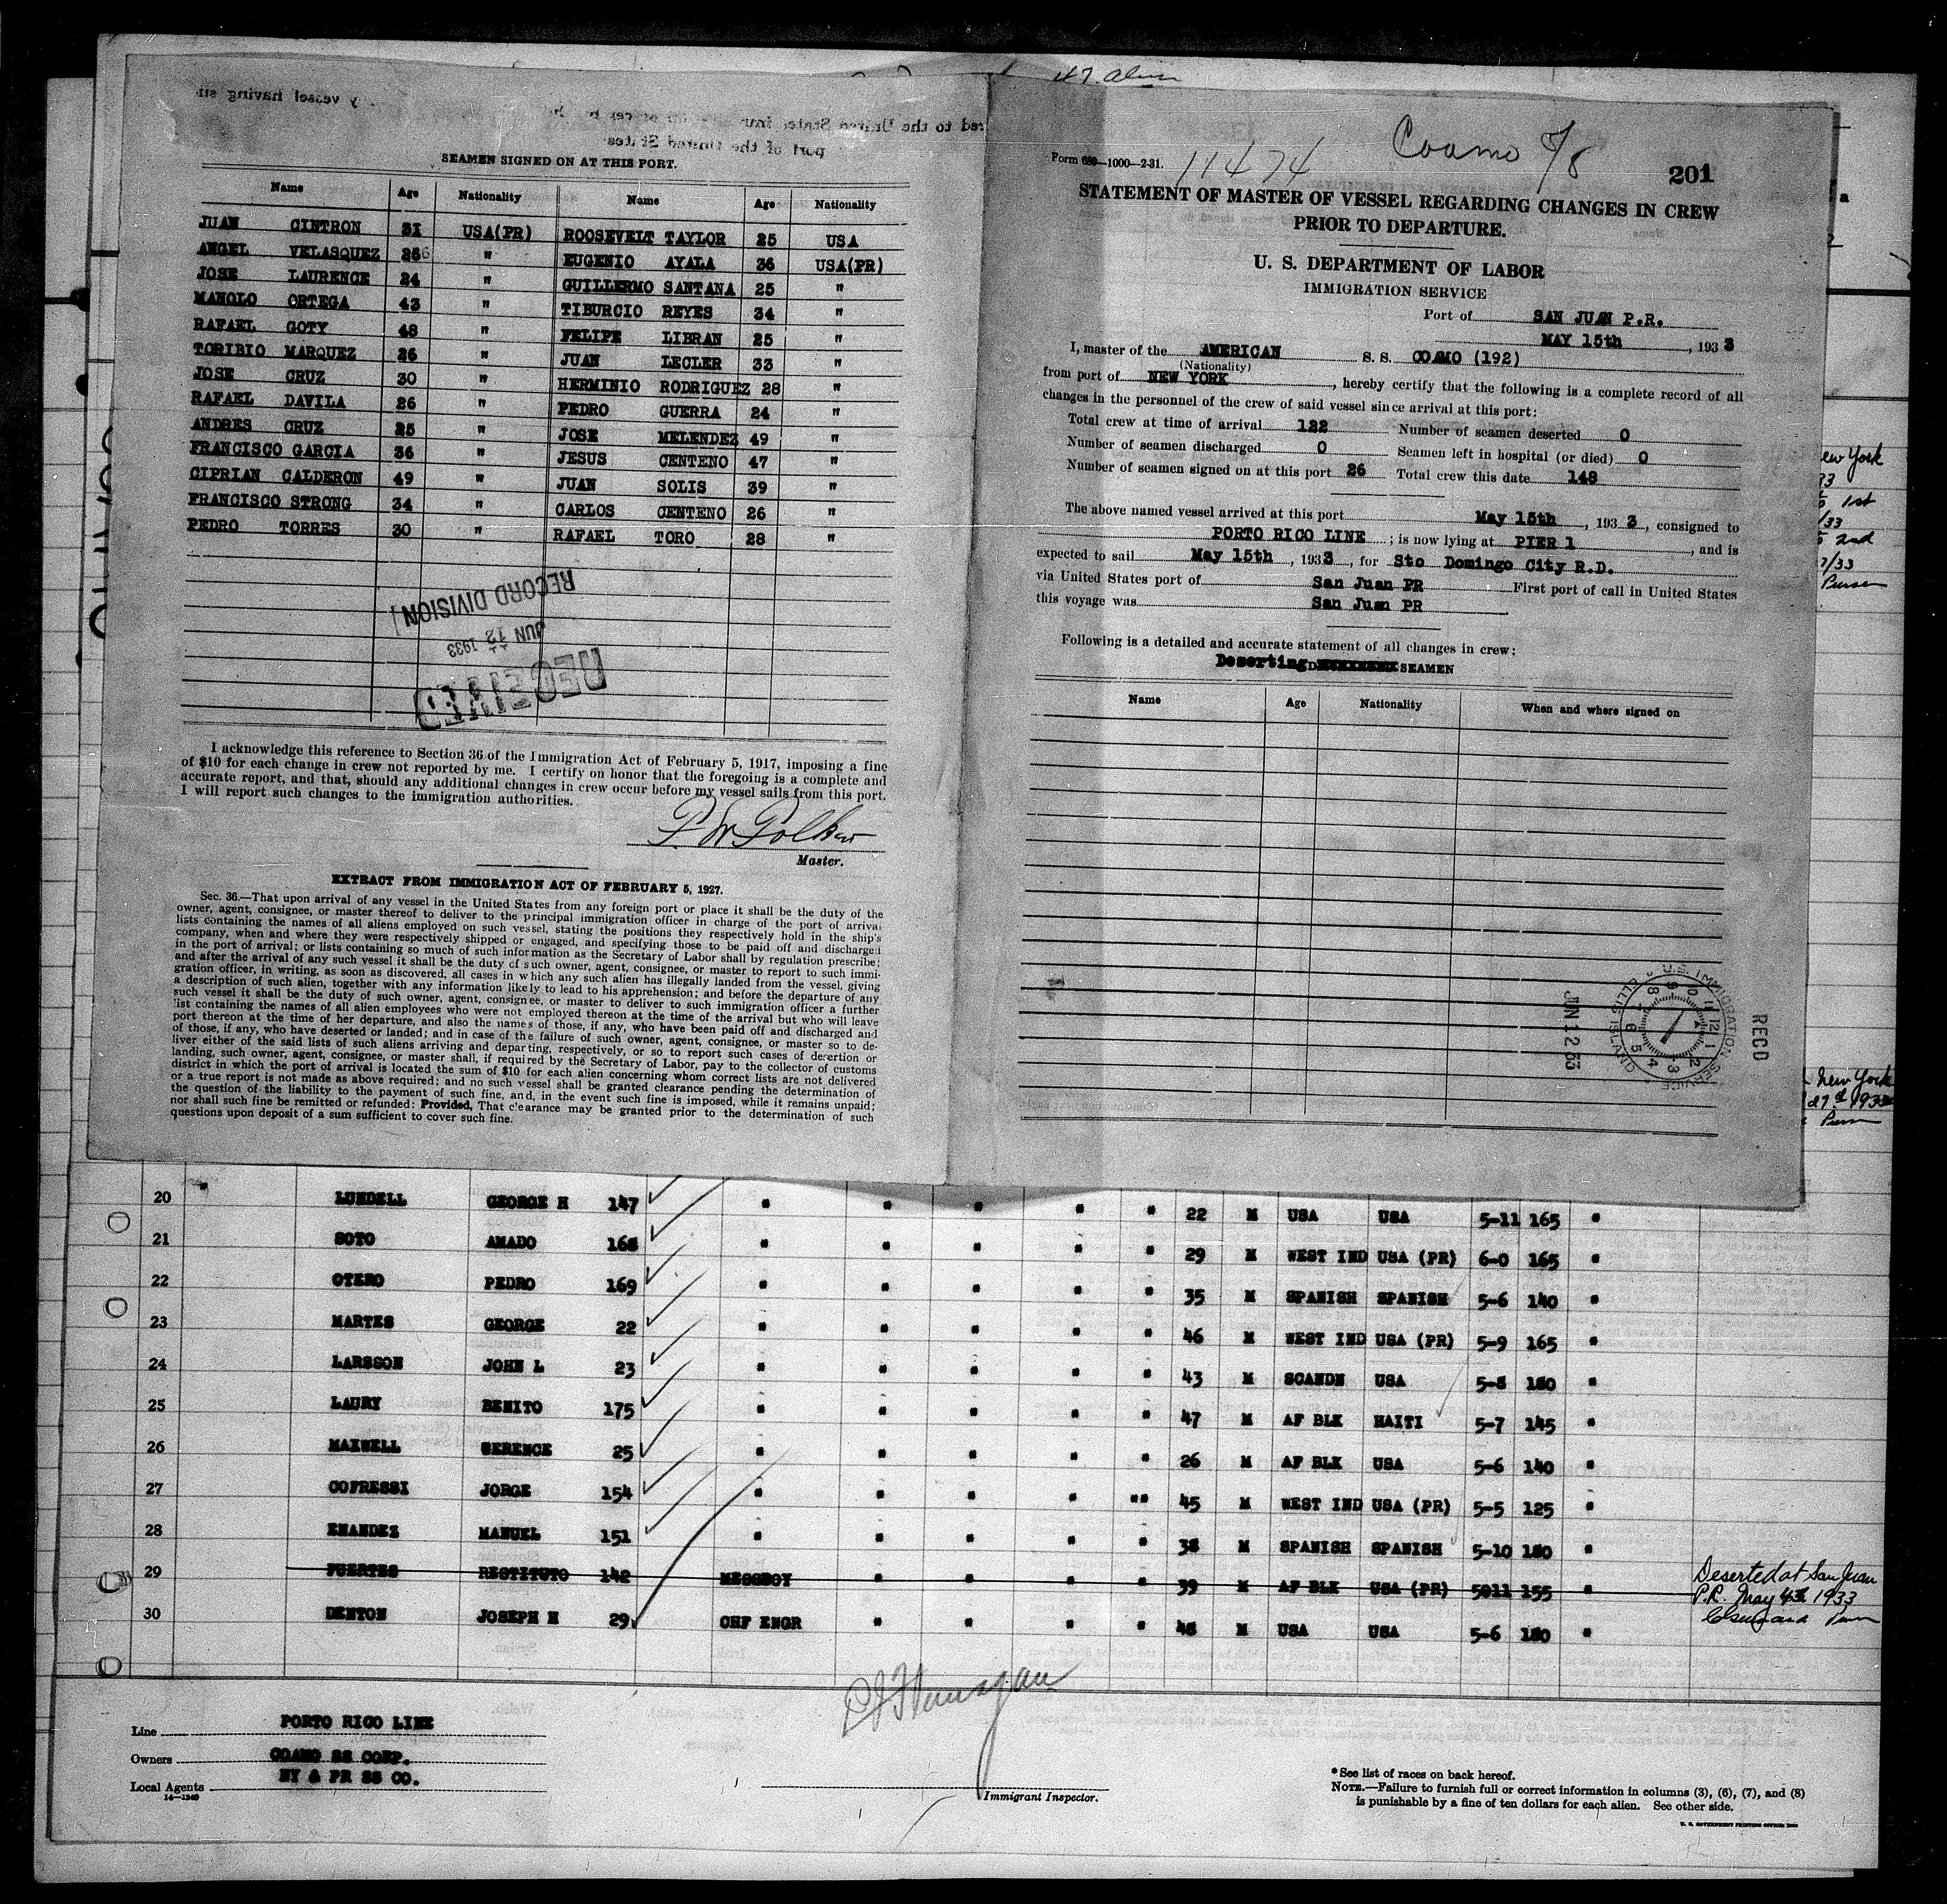 47 Alien
SEAMEN SIGNED ON AT THIS PORT.
Name Age Nationality Name Age Nationality
JUAN CINTRON 31 USA(PR) ROOSEVELT TAYLOR 25 USA
ANGEL VELASQUEZ 26 " EUGENIO AYALA 36 USA(PR)
JOSE LAURENCE 24 " GUILLERMO SANTANA 25 "
MANOLO ORTEGA 43 " TIBURCIO REYES 34 "
RAFAEL GOTY 48 " FELIPE LIBRAN 25 "
TORIBIO MARQUEZ 26 " JUAN LECLER 33 "
JOSE CRUZ 30 " HERMINIO RODRIGUEZ 28 "
RAFAEL DAVILA 26 " PEDRO GUERRA 24 "
ANDRES CRUZ 25 " JOSE MELENDEZ 49 "
FRANCISCO GARCIA 36 " JESUS CENTENO 47 "
CIPRIAN CALDERON 49 " JUAN SOLIS 39 "
FRANCISCO STRONG 34 " CARLOS CENTENO 26 "
PEDRO TORRES 30 " RAFAEL TORO 28 "
RECORD DIVISION
JUN 12 1933
RECEIVED
I acknowledge this reference to Section 36 of the Immigration Act of February 5, 1917, imposing a fine
of $10 for each change in crew not reported by me. I certify on honor that the foregoing is a complete and
accurate report, and that, should any additional changes in crew occur before my vessel sails from this port.
I will report such changes to the immigration authorities.
Master.
EXTRACT FROM IMMIGRATION ACT OF FEBRUARY 5, 1927.
Sec. 36.—That upon arrival of any vessel in the United States from any foreign port or place it shall be the duty of the
owner, agent, consignee, or master thereof to deliver to the principal immigration officer in charge of the port of arrival
lists containing the names of all aliens employed on such vessel, stating the positions they respectively hold in the ship's
company, when and where they were respectively shipped or engaged, and specifying those to be paid off and discharged
in the port of arrival; or lists containing so much of such information as the Secretary of Labor shall by regulation prescribe;
and after the arrival of any such vessel it shall be the duty of such owner, agent, consignee, or master to report to such immi-
gration officer, in writing, as soon as discovered, all cases in which any such alien has illegally landed from the vessel, giving
a description of such alien, together with any information likely to lead to his apprehension; and before the departure of any
such vessel it shall be the duty of such owner, agent, consignee, or master to deliver to such immigration officer a further
list containing the names of all alien employees who were not employed thereon at the time of the arrival but who will leave
port thereon at the time of her departure, and also the names of those, if any, who have been paid off and discharged and
of those, if any, who have deserted or landed; and in case of the failure of such owner, agent, consignee, or master so to de-
liver either of the said lists of such aliens arriving and departing, respectively, or so to report such cases of desertion or
landing, such owner, agent, consignee, or master shall, if required by the Secretary of Labor, pay to the collector of customs
district in which the port of arrival is located the sum of $10 for each alien concerning whom correct lists are not delivered
or a true report is not made as above required; and no such vessel shall be granted clearance pending the determination of
the question of the liability to the payment of such fine, and, in the event such fine is imposed, while it remains unpaid;
nor shall such fine be remitted or refunded: Provided, That clearance may be granted prior to the determination of such
questions upon deposit of a sum sufficient to cover such fine.
Form 689—1000—2-31. 11474 Coamo 5/8 201
STATEMENT OF MASTER OF VESSEL REGARDING CHANGES IN CREW
PRIOR TO DEPARTURE.
U. S. DEPARTMENT OF LABOR
IMMIGRATION SERVICE
Port of SAN JUAN P.R.
MAY 15th, 1933
I, master of the AMERICAN S. S. COAMO (192)
(Nationality)
from port of NEW YORK, hereby certify that the following is a complete record of all
changes in the personnel of the crew of said vessel since arrival at this port:
Total crew at time of arrival 122 Number of seamen deserted 0
Number of seamen discharged 0 Seamen left in hospital (or died) 0
Number of seamen signed on at this port 26 Total crew this date 148
The above named vessel arrived at this port May 15th, 1933, consigned to
PORTO RICO LINE; is now lying at PIER 1, and is
expected to sail May 15th, 1933, for Sto Domingo City R.D.
via United States port of San Juan PR First port of call in United States
this voyage was San Juan PR
Following is a detailed and accurate statement of all changes in crew:
Deserting SEAMEN
Name Age Nationality When and where signed on
RECD
U.S. IMMIGRATION SERVICE
ELLIS ISLAND
JUN 12 33
New York
27th 1933
20 LUNDELL GEORGE H 147 " " " " " 22 M USA USA 5-11 165 "
21 SOTO AMADO 168 " " " " " 29 M WEST IND USA (PR) 6-0 165 "
22 OTERO PEDRO 169 " " " " " 35 M SPANISH SPANISH 5-6 140 "
23 MARTES GEORGE 22 " " " " " 46 M WEST IND USA (PR) 5-9 165 "
24 LARSSON JOHN L 23 " " " " " 43 M SCANDN USA 5-8 180 "
25 LAURY BENITO 175 " " " " " 47 M AF BLK HAITI 5-7 145 "
26 MAXWELL SERENCE 25 " " " " " 26 M AF BLK USA 5-6 140 "
27 COFRESSI JORGE 154 " " " " " 45 M WEST IND USA (PR) 5-5 125 "
28 ENANDEZ MANUEL 151 " " " " " 38 M SPANISH SPANISH 5-10 180 "
29 FUERTES RESTITUTO 142 MESSBOY " " " " 39 M AF BLK USA (PR) 5011 155 " Deserted at San Juan
P.R. May 4th 1933
30 DENTON JOSEPH H 29 CHF ENGR " " " " 48 M USA USA 5-6 180 "
Line PORTO RICO LINE
Owners COAMO SS CORP.
Local Agents NY & PR SS CO.
14—1240
Immigrant Inspector.
* See list of races on back hereof.
NOTE.—Failure to furnish full or correct information in columns (3), (6), (7), and (8)
is punishable by a fine of ten dollars for each alien. See other side.